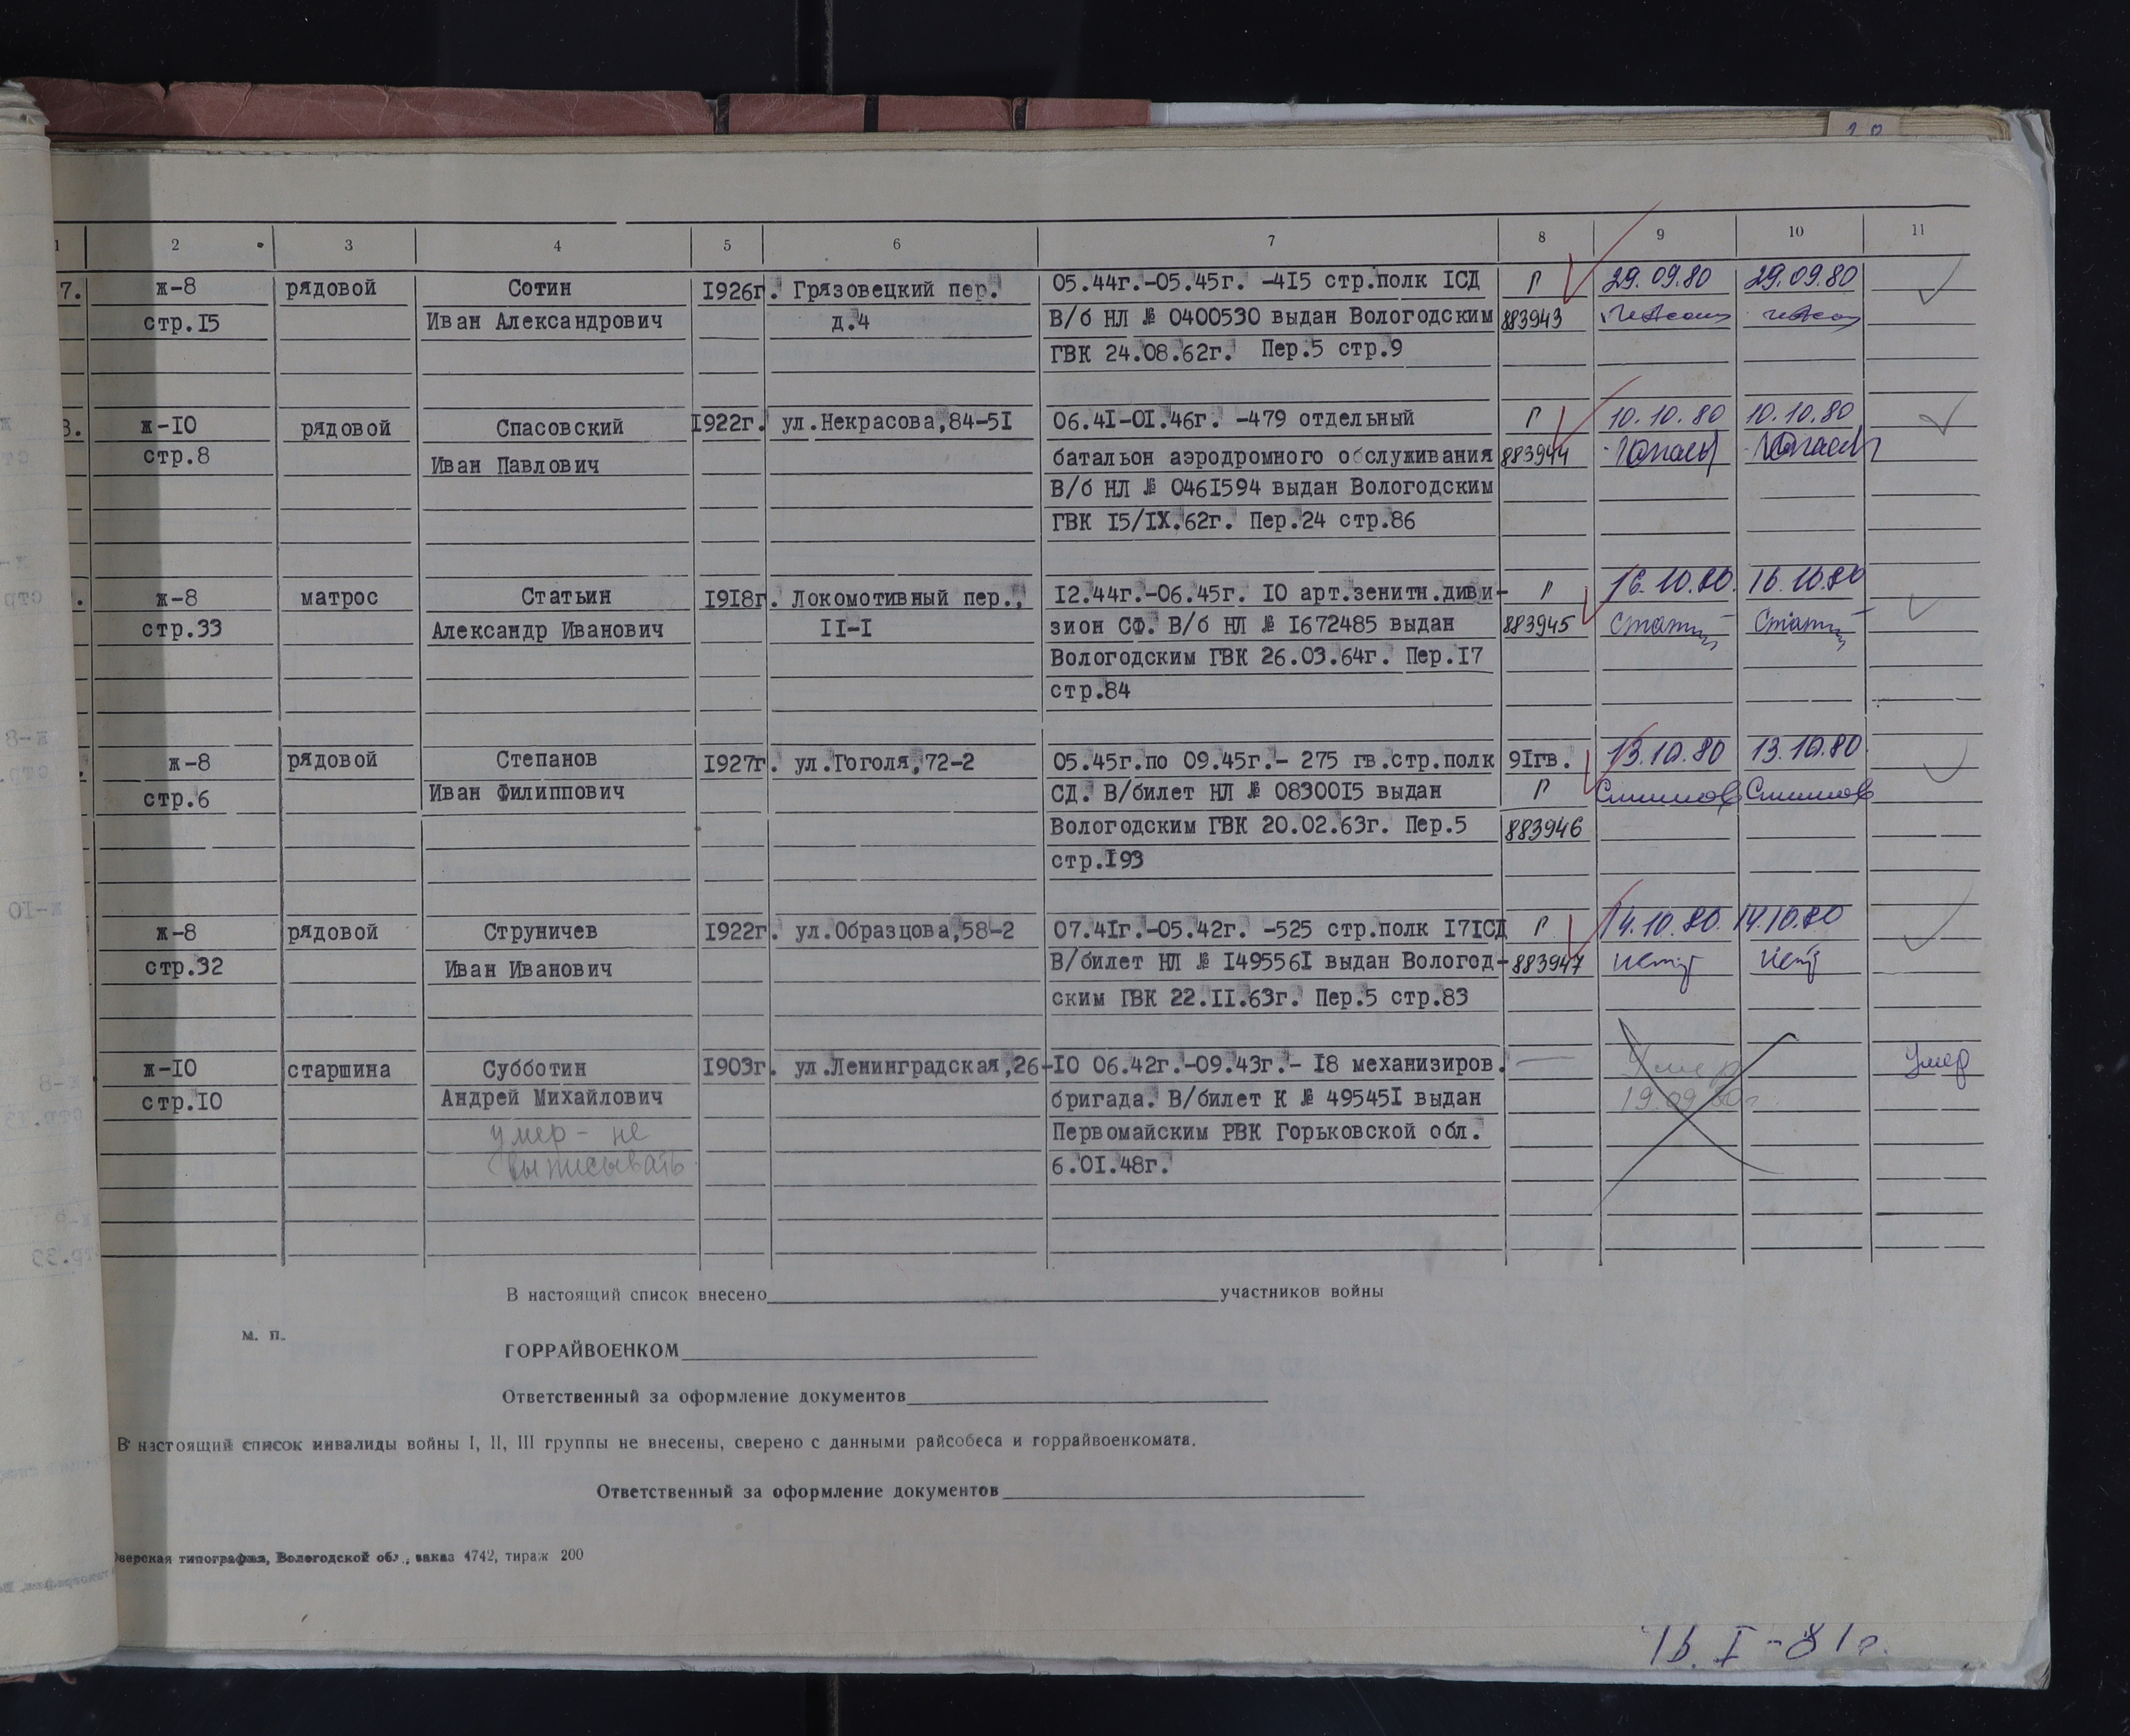 1 2 3 4 5 6 7 8 9 10 11
7. ж-8 рядовой Сотин 1926г. Грязовецкий пер. 05.44г.-05.45г. -415 стр.полк 1СД Г 29.09.80 29.09.80
стр.15 Иван Александрович д.4 В/б НЛ № 0400530 выдан Вологодским 883943
ГВК 24.08.62г. Пер.5 стр.9
8. ж-10 рядовой Спасовский 1922г. ул.Некрасова,84-51 06.41-01.46г. -479 отдельный Г 10.10.80 10.10.80
стр.8 Иван Павлович батальон аэродромного обслуживания 883944
В/б НЛ № 0461594 выдан Вологодским
ГВК 15/IX.62г. Пер.24 стр.86
ж-8 матрос Статьин 1918г. Локомотивный пер., 12.44г.-06.45г. 10 арт.зенитн.диви- Г 16.10.80. 16.10.80
стр.33 Александр Иванович 11-1 зион СФ. В/б НЛ № 1672485 выдан 883945
Вологодским ГВК 26.03.64г. Пер.17
стр.84
ж-8 рядовой Степанов 1927г. ул.Гоголя,72-2 05.45г.по 09.45г.- 275 гв.стр.полк 91гв. 13.10.80 13.10.80
стр.6 Иван Филиппович СД. В/билет НЛ № 0830015 выдан Г
Вологодским ГВК 20.02.63г. Пер.5 883946
стр.193
ж-8 рядовой Струничев 1922г. ул.Образцова,58-2 07.41г.-05.42г. -525 стр.полк 171СД Г 14.10.80. 14.10.80
стр.32 Иван Иванович В/билет НЛ № 1495561 выдан Вологод- 883947
ским ГВК 22.11.63г. Пер.5 стр.83
ж-10 старшина Субботин 1903г. ул.Ленинградская,26-10 06.42г.-09.43г.- 18 механизиров. — Умер Умер
стр.10 Андрей Михайлович бригада. В/билет К № 495451 выдан 19.09.80г.
умер - не Первомайским РВК Горьковской обл.
выписывать 6.01.48г.
В настоящий список внесено участников войны
м. п.
ГОРРАЙВОЕНКОМ
Ответственный за оформление документов
В настоящий список инвалиды войны I, II, III группы не внесены, сверено с данными райсобеса и горрайвоенкомата.
Ответственный за оформление документов
типография, Вологодской обл., заказ 4742, тираж 200
16.I-81г.